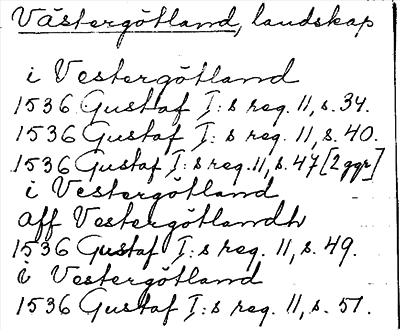 Västergötland, landskap
i Vestergötland
1536 Gustaf I:s reg. 11, s. 34.
1536 Gustaf I:s reg. 11, s. 40.
1536 Gustaf I:s reg. 11, s. 47 [2 ggr]
i Vestergötland
aff Vestergötlandh
1536 Gustaf I:s reg. 11, s. 49.
i Vestergötland
1536 Gustaf I:s reg. 11, s. 51.